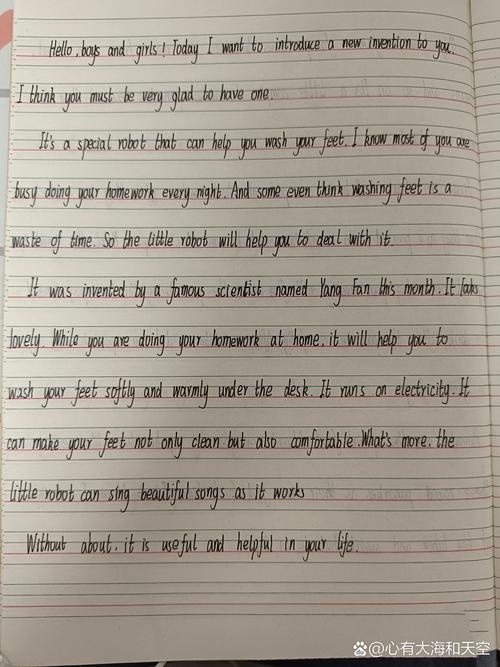 Hello, boys and girls! Today I want to introduce a new invention to you.
I think you must be very glad to have one.
It's a special robot that can help you wash your feet. I know most of you are
busy doing your homework every night. And some even think washing feet is a
waste of time. So the little robot will help you to deal with it.
It was invented by a famous scientist named Yang Fan this month. It looks
lovely. While you are doing your homework at home, it will help you to
wash your feet softly and warmly under the desk. It runs on electricity. It
can make your feet not only clean but also comfortable. What's more, the
little robot can sing beautiful songs as it works
Without about, it is useful and helpful in your life.
心有大海和天空